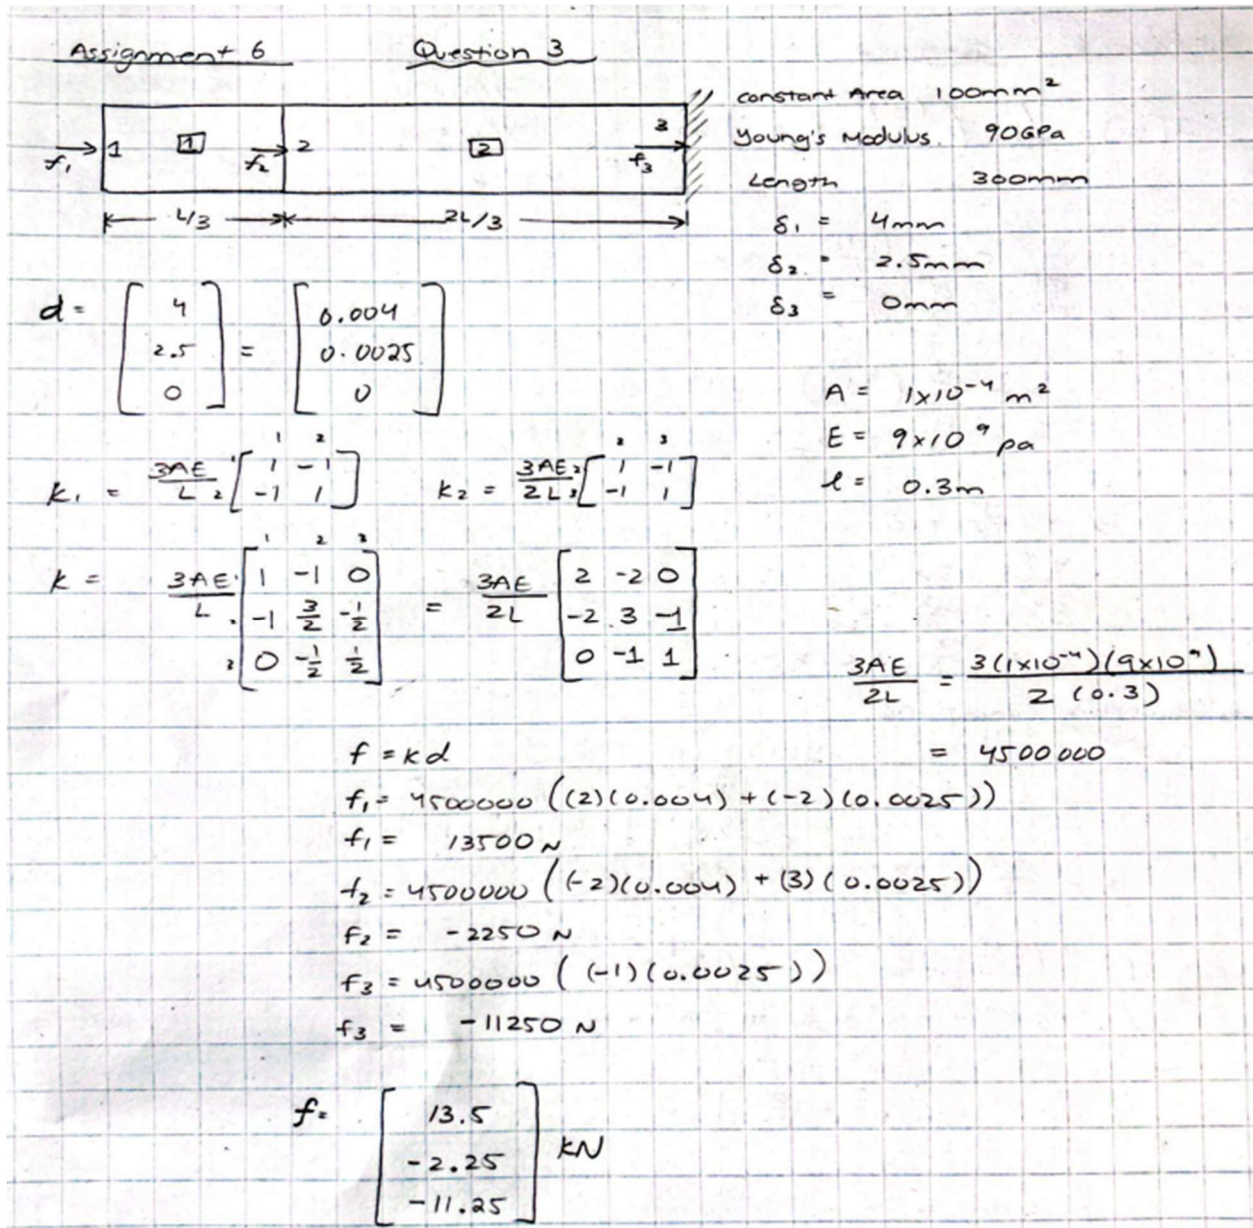 Assignment 6 Question 3
f₁ 1 1 f₂ 2 2 f₃ 3
L/3 2L/3
constant Area 100mm²
Young's Modulus. 90GPa
Length 300mm
δ₁ = 4mm
δ₂ = 2.5mm
δ₃ = 0mm
d = [4 2.5 0] = [0.004 0.0025 0]
A = 1x10⁻⁴ m²
E = 9x10⁹ pa
l = 0.3m
k₁ = 3AE/L [1 -1; -1 1] k₂ = 3AE/2L [1 -1; -1 1]
k = 3AE/L [1 -1 0; -1 3/2 -1/2; 0 -1/2 1/2] = 3AE/2L [2 -2 0; -2 3 -1; 0 -1 1]
3AE/2L = 3(1x10⁻⁴)(9x10⁹)/2(0.3)
= 4500000
f = kd
f₁ = 4500000 ((2)(0.004) + (-2)(0.0025))
f₁ = 13500 N
f₂ = 4500000 ((-2)(0.004) + (3)(0.0025))
f₂ = -2250 N
f₃ = 4500000 ((-1)(0.0025))
f₃ = -11250 N
f = [13.5 -2.25 -11.25] kN